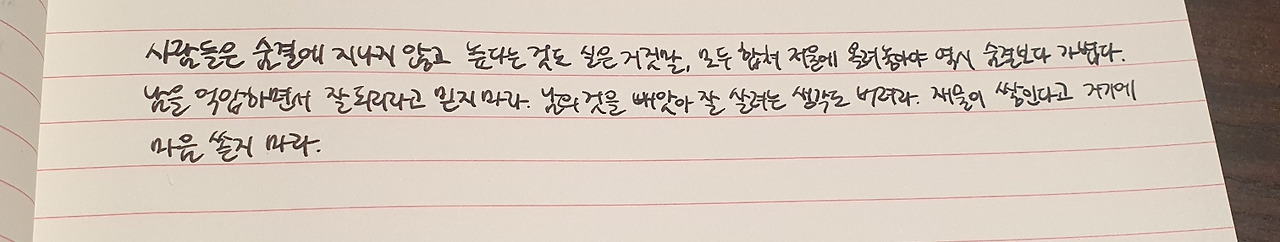 사람들은 숨결에 지나지 않고 높다는 것도 실은 거짓말, 모두 합쳐 저울에 올려놓아야 역시 숨결보다 가볍다.
남을 억압하면서 잘 되리라고 믿지 마라. 남의 것을 빼앗아 잘 살려는 생각도 버려라. 재물이 쌓인다고 거기에
마음 쏟지 마라.